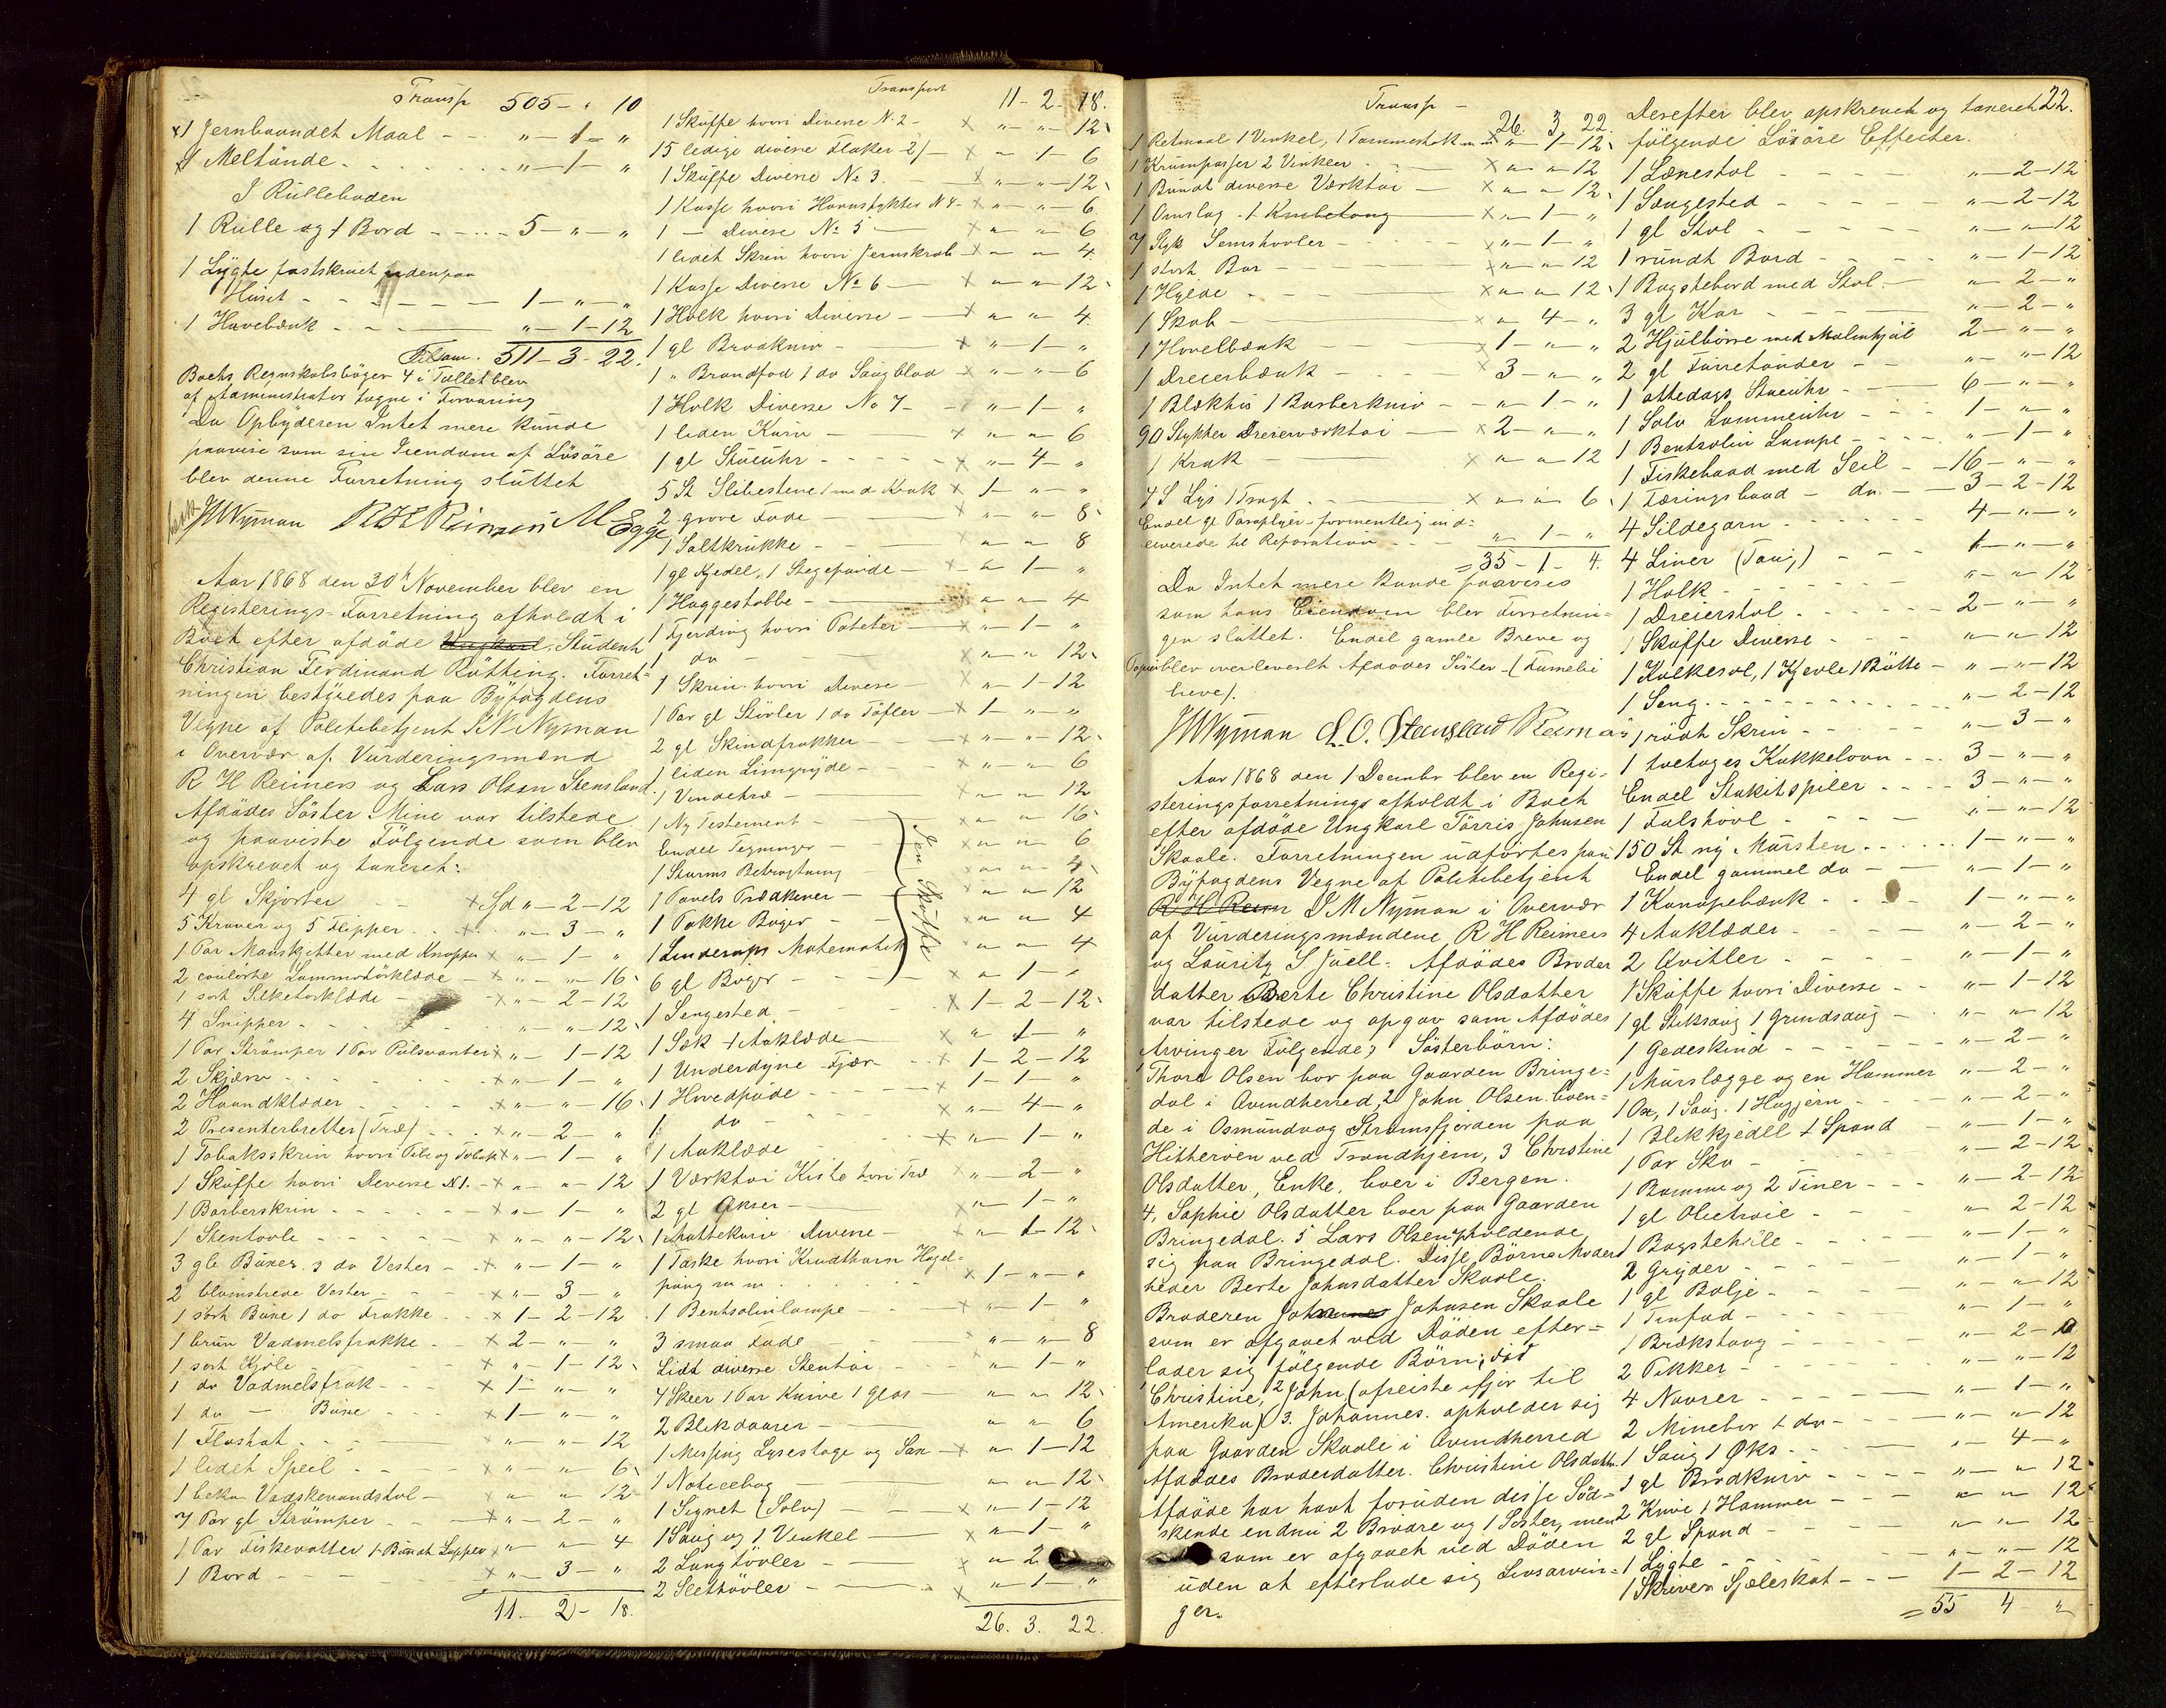 Transp 505 - " 10
1 Jernbaandet Maal - - " - 1 - "
1 Meltønde - - - " - 1 - "
I Rulleboden
1 Rulle og 1 Bord - - - 5 - " - "
1 Lygte fastskruet udenpaa
Huset - - - 1 - " - "
1 Havebænk - - - " - 1 - 12
511 - 3 - 22.
Boets Regnskabsbøger 4 i Tallet blev
af Administrator tagne i Forvaring
Da Opbyderen Intet mere kunde
paavise som sin Eiendom af Løsøre
blev denne Forretning sluttet
JM Nyman R H Reimers M Egge
Aar 1868 den 30te November blev en
Registerings-Forretning afholdt i
Boet efter afdøde Ungkarl, Student
Christian Ferdinand Rötting. Forret-
ningen bestyredes paa Byfogdens
Vegne af Politibetjent Nyman
i Overvær af Vurderingsmænd
R H Reimers og Lars Olsen Stensland.
Afdødes Søster Mine var tilstede
og paaviste Følgende som blev
opskrevet og taxeret:
4 gl Skjorter - - Spd " - 2 - 12
5 Kraver og 5 Flipper - - " - 3 - "
1 Par Manskjetter med Knapper " - 1 - "
2 coulørte Lommetørklæde - " - " - 16
1 sort Silketørklæde - " - 2 - 12
4 Snipper - - - " - " - 12
1 Par Strømper 1 Par Pulsvanter " - 1 - 12
2 Skjærv - - - " - 1 - "
2 Haandklæder - - - " - " - 16
2 Presenterbretter (Træ) - - " - 2 - "
1 Tobaksskrin hvori Pibe og Tobak " - 1 - "
1 Skuffe hvori Diverse N 1. - " - " - 12
1 Barberskrin - - - " - 1 - "
1 Stentavle - - - " - " - 12
3 gle Buxer 3 do Vester - " - 1 - "
2 blomstrede Vester - - " - 3 - "
1 sort Buxe 1 do Frakke - - 1 - 2 - 12
1 brun Vadmelsfrakke - 2 - " - "
1 sort Kjole - " - 1 - 12
1 do Vadmelsfrak - - 1 - " - "
1 do - Buxe - - 1 - " - "
1 Floshat - - " - " - 12
1 lidet Speil - - " - " - 6
1 bekv. Vadskevandstol - " - " - 12
7 Par gl Strømper - - " - 2 - "
1 Par Fiskevotter 1 Bundt Lapper " - " - 4
1 Bord - - - " - 3 - "
11 - 2 - 18.
Transport 11 - 2 - 18.
1 Skuffe hvori Diverse N. 2 - " - " - 12
15 ledige diverse Flasker 2/ - " - 1 - 6
1 Skuffe Diverse No 3. - " - " - 12
1 Kasse hvori Hornstykker N 4 - " - " - 6
1 - Diverse No 5 - " - " - 6
1 lidet Skrin hvori Jernskrab - " - " - 4
1 Kasse Diverse No 6 - " - " - 12
1 Holk hvori Diverse - " - " - 4
1 gl Brødkniv - " - 1 - "
1 " Brandfad 1 do Saugblad - " - " - 6
1 Holk Diverse No 7 - " - 1 - "
1 liden Kurv - " - " - 6
1 gl Stueuhr - - - " - 4 - "
5 St Slibestene 1 med Krak 1 - " - "
2 grove Fade - " - " - 8
1 Saltkrukke - " - " - 8
1 gl Kjedel, 1 Stegepande - " - 1 - "
1 Huggestabbe - " - " - 4
1 Fjerding hvori Poteter - " - 1 - "
1 do - " - " - 12
1 Skrin hvori Diverse - " - 1 - 12
1 Par gl Støvler 1 do Tøfler - 1 - " - "
2 gl Skindfrakker - " - " - 12
1 liden Limgryde - " - " - 6
1 Vendetræ - " - " - 12
1 Ny Testament - " - " - 16
Endel Tegninger - " - " - 6
1 Sturms Betragtning " - " - 4
1 Pavels Prædikener - " - " - 12
1 Pakke Bøger - - " - " - 4
1 Linderups Matematik " - " - 4
6 gl Bøger - - " - 1 - "
1 Sengested - 1 - 2 - 12
1 Sæk 1 Aaklæde - " - 1 - "
1 Underdyne Fjær - - 1 - 2 - 12
1 Hovedpude - - 1 - 1 - "
1 do - " - 4 - "
1 Aaklæde - " - 1 - "
1 Værktøi Kiste hvori Træ " - 2 - "
2 gl Økser - " - 1 - "
1 Mattekurv Diverse - " - 1 - 12
1 Taske hvori Krudthorn Hagel-
pung m m - - 1 - " - "
1 Bentsolinlampe - - " - 1 - "
3 smaa Fade - " - " - 8
Lidt diverse Stentøi - - " - 1 - "
4 Skeer 1 Par Knive 1 Glas - " - " - 12
2 Blikdaaser - " - " - 6
1 Messing Lysestage og Sax - " - 1 - 12
1 Noticebog - " - " - 12
1 Signet (Sølv) - " - 1 - 12
1 Saug og 1 Vinkel - " - 1 - "
2 Langhøvler - " - 2
2 Sletthøvler - " - 1 - "
26. 3. 22.
Transp - 26. 3 22.
1 Retmaal 1 Vinkel, 1 Tommestok m m " - 1 - 12
1 Krumpasser 2 Vinkler - " - " - 12
1 Bundt diverse Værktøi - " - " - 12
1 Omslag - 1 Knibetang - " - 1 - "
7 Styk Semshøvler - " - 1 - "
1 stort Bor - " - " - 12
1 Hylde - " - " - 12
1 Skab - " - 4 - "
1 Høvelbænk - 1 - " - "
1 Dreierbænk - 3 - " - "
1 Blækhus 1 Barberkniv - " - 1 - "
90 Stykker Dreierværktøi - 2 - " - "
1 Krak - " - " - 12
4 S Lys 1 Tragt - " - " - 6
Endel gl Paraplyer - formentlig ind-
leverede til Reparation - - " - 1 - "
= 35 - 1 - 4.
Da Intet mere kunde paavises
som hans Eiendom blev Forretnin-
gen sluttet. Endel gamle Breve og
Papirer blev overleveret Afdødes Søster - (Familie
breve).
JM Nyman L. O. Stensland Reimers
Aar 1868 den 1 Decembr blev en Regi-
steringsforretning afholdt i Boet
efter afdøde Ungkarl Tørris Johnsen
Skaale. Forretningen udførtes paa
Byfogdens Vegne af Politibetjent
R H Reim Nyman i Overvær
af Vurderingsmændene R H Reimers
og Lauritz S Juell. Afdødes Broder
datter Berte Christine Olsdatter
var tilstede og opgav som Afdødes
Arvinger Følgende, Søsterbørn:
1 Thore Olsen bor paa Gaarden Bringe-
dal i Qvindherred, 2 John Olsen boen-
de i Osmundvog Strømsfjorden paa
Hitterøen ved Trondhjem, 3 Christine
Olsdatter, Enke, boer i Bergen.
4. Sophie Olsdatter boer paa Gaarden
Bringedal. 5 Lars Olsen opholdende
sig paa Bringedal. Disse Børns Moder
heder Berte Johnsdatter Skaale.
Broderen Johannes Johnsen Skaale
som er afgaaet ved Døden efter-
lader sig følgende Børn:
1 Christine, 2 John (afreiste ifjor til
Amerika) 3. Johannes opholder sig
paa Gaarden Skaale i Qvindherred
Afdødes Broderdatter Christine Olsdatter
Afdøde har havt foruden disse Sød-
skende endnu 2 Brødre og 1 Søster, men
som er afgaaet ved Døden
uden at efterlade sig Livsarvin-
ger.
22.
Derefter blev opskrevet og taxeret
følgende Løsøre Effecter.
1 Lænestol - " - 2 - 12
1 Sengested - " - 2 - 12
1 gl Stol - " - " - 12
1 rundt Bord - " - 1 - 12
1 Bagstebord med Stol - " - 2 - "
3 gl Kar - " - 2 - "
2 Hjulbøre med Malmhjul 2 - " - "
2 gl Tørretønder - - " - " - 12
1 ottedags Stueuhr - 6 - " - "
1 Sølv Lommeuhr - - 1 - " - "
1 Bentsolin Lampe - " - 1 - "
1 Fiskebaad med Seil - 16 - " - "
1 Færingsbaad - do. - 3 - 2 - 12
4 Sildegarn - 4 - " - "
4 Liner (Taug) - 1 - " - "
1 Holk - " - " - 12
1 Dreierstol - 2 - " - "
1 Skuffe Diverse - " - " - 12
1 Kulkesol, 1 Kjevle 1 Bøtte - " - " - 12
1 Seng - " - 2 - 12
1 rødt Skrin - " - 3 - "
1 toetages Kakkelovn - - 3 - " - "
Endel Stakitspiler - - - 3 - " - "
1 Falshøvl - " - " - 12
150 St ny Mursten - 1 - " - "
Endel gammel do - " - 1 - "
1 Kanapebænk - 1 - " - "
4 Aaklæder - " - 2 - "
2 Qvitler - " - 1 - "
1 Skuffe hvori Diverse - " - 1 - 12
1 gl Stiksaug 1 Grindsaug - " - " - 12
1 Gedeskind - " - 2 - "
1 Murslægge og en Hammer " - 2 - "
1 Øx, 1 Saug. 1 Hugjern - " - 2 - "
1 Blikkjedel 1 Spand - " - 1 - "
1 Par Sko - " - 2 - 12
1 Bomme og 2 Tiner - " - 2 - 12
1 gl Olietrøie - " - 2 - 12
1 Bagstehelle - " - 1 - "
2 Gryder - " - 1 - "
1 gl Balje - " - " - 12
1 Tinfad - " - 1 - "
1 Brækstang - " - 2 -
2 Pikker - " - " - 12
4 Navrer - " - 1 - "
2 Minebor 1 do - " - " - 12
1 Saug 1 Øks - " - 4 - "
1 gl Brødkniv - " - " 12
2 Knive 1 Hammer - " - " 12
2 gl Spand - " - " - 12
1 Lygte - " - " - 12
1 Skriver Sjæleskat - - 1 - 2 - 12
= 55 4 - "